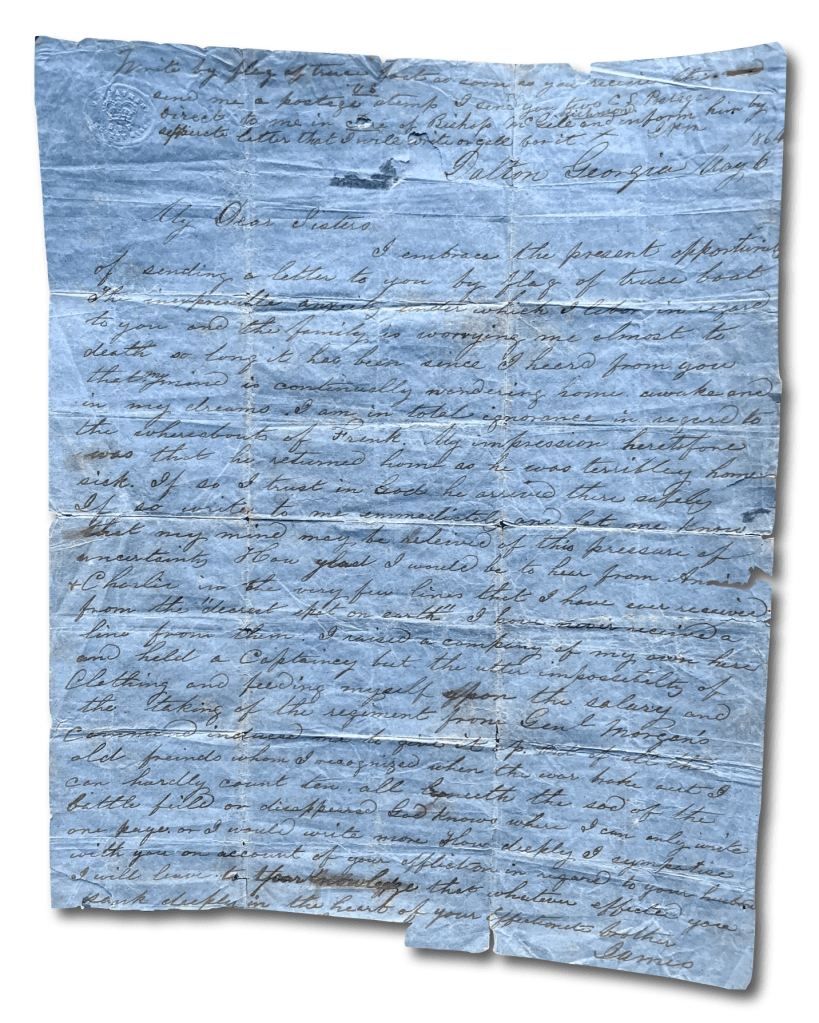 Write by flag of truce boat as soon as you receive this. and
send me a postage stamp I send you two C.S. Postg
US
Direct to me in Care of Bishop McGill and inform him by
Richmond
seperate letter that I write to its or get bon it
1864
Dalton Georgia May 6
My Dear Sisters
I embrace the present opportunity
of sending a letter to you by flag of truce boat
The inexpressible anxiety under which I labor in regard
to you and the family is worrying me almost to
death so long it has been since I heard from you
that my mind is continually wandering home awake and
in my dreams. I am in total ignorance in regard to
the whereabouts of Frank. My impression heretofore
was that he returned home as he was terribley home
sick. If so I trust in God he arrived there safely
If so write to me immediately and let me know
that my mind may be releived of this pressure of
uncertainty How glad I would be to hear from Annie
& Charlie in the very few lines that I have ever received
from the "dearest spot on earth" I have never received a
line from them. I raised a company of my own here
and held a Captaincy but the utter impossibility of
Clothing and feeding myself upon the salary and
the taking of the regiment from Gen l Morgan's
command induced me to give it up. out of all the
old freinds whom I recognized when the war broke out I
can hardly count ten. all beneith the sod of the
battle field or disappeared God knows where I can only write
one page or I would write more I love deeply I sympathise
with you on account of your affliction in regard to your husband
I will leave to Your knowledge that whatever effected you
sank deeply in the heart of your affectionate brother
James